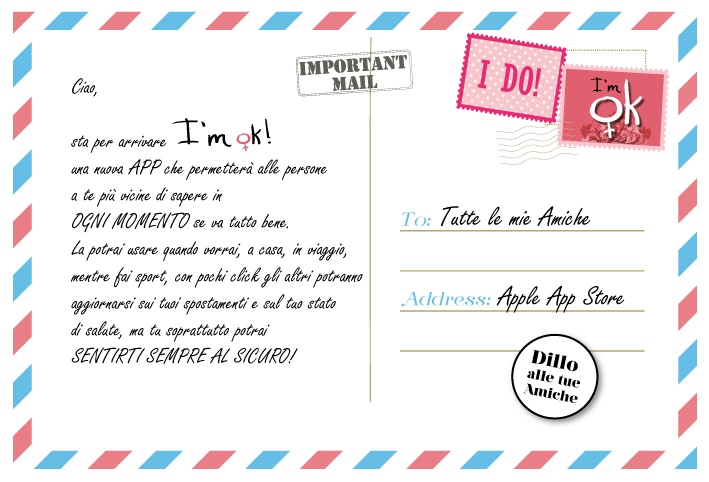 IMPORTANT
MAIL
I DO!
I'm
ok
Ciao,
sta per arrivare I'm ok!
una nuova APP che permetterà alle persone
a te più vicine di sapere in
OGNI MOMENTO se va tutto bene.
La potrai usare quando vorrai, a casa, in viaggio,
mentre fai sport, con pochi click gli altri potranno
aggiornarsi sui tuoi spostamenti e sul tuo stato
di salute, ma tu soprattutto potrai
SENTIRTI SEMPRE AL SICURO!
To: Tutte le mie Amiche
Address: Apple App Store
Dillo
alle tue
Amiche